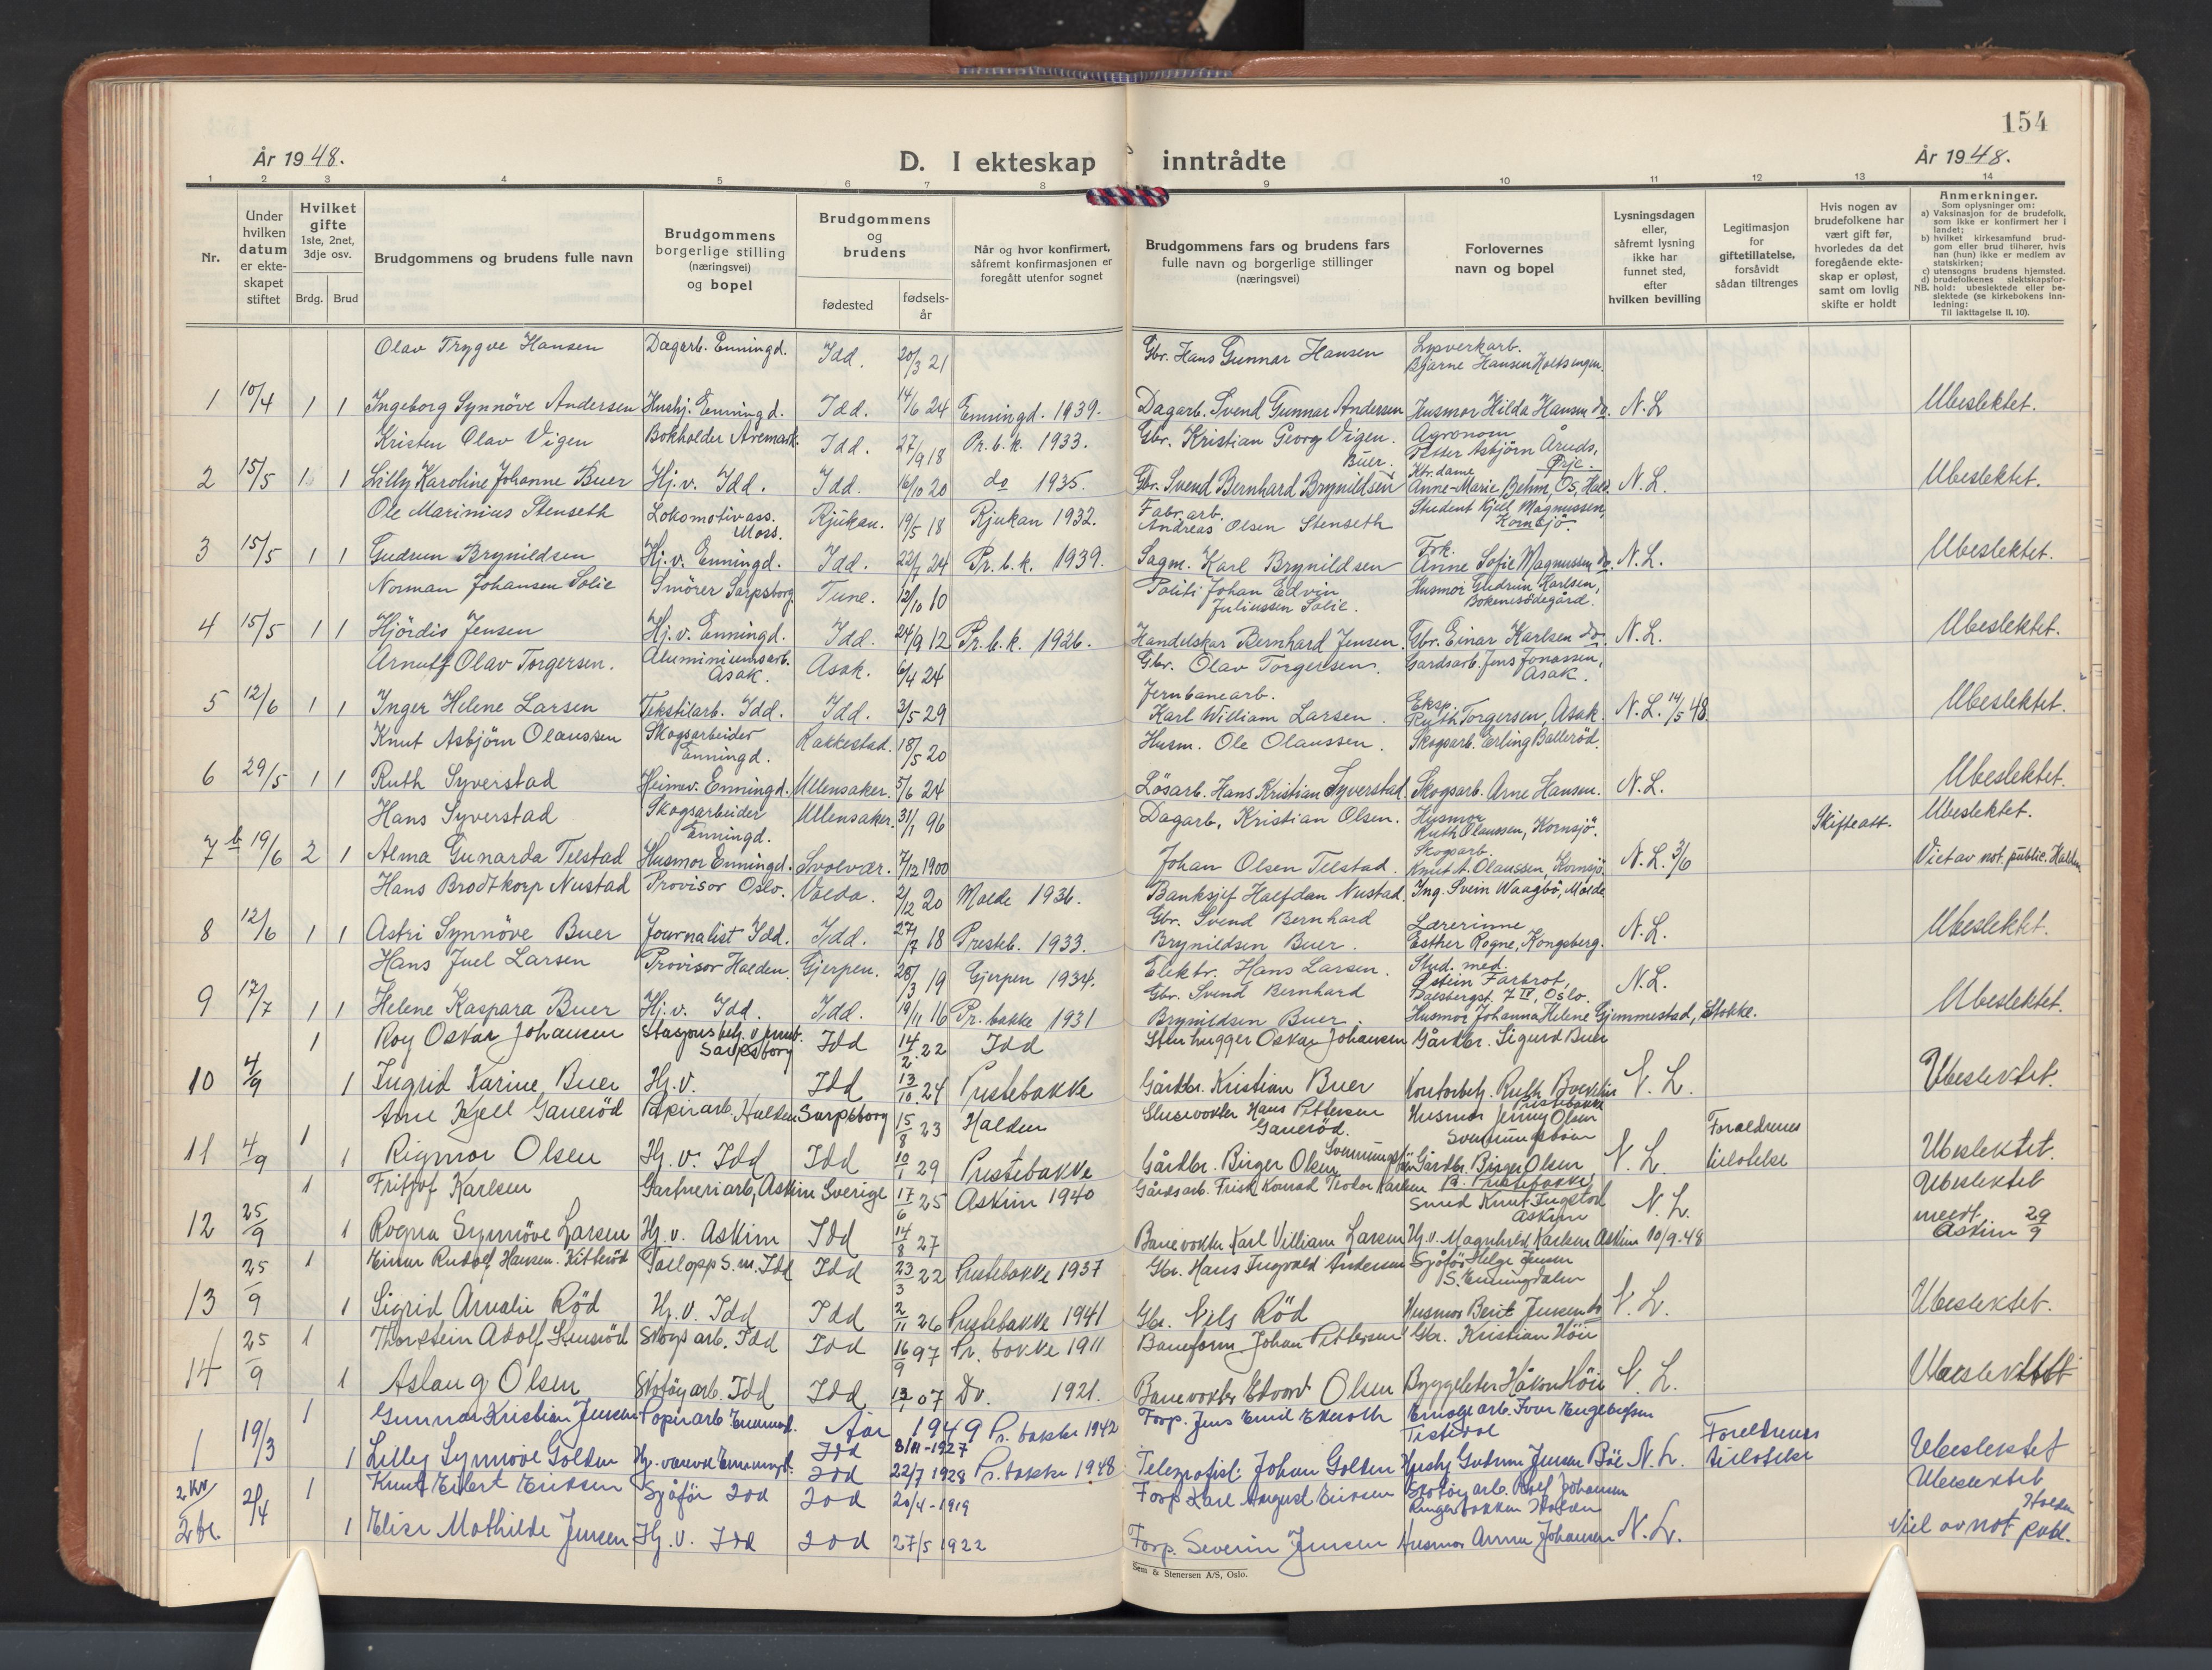 154
År 1948.
D. I ekteskap inntrådte
År 1948.
1 2 3 4 5 6 7 8 9 10 11 12 13 14
Nr.
Under hvilken datum er ekteskapet stiftet
Hvilket gifte 1ste, 2net, 3dje osv.
Brdg. Brud
Brudgommens og brudens fulle navn
Brudgommens borgerlige stilling (næringsvei) og bopel
Brudgommens og brudens
fødested
fødselsår
Når og hvor konfirmert, såfremt konfirmasjonen er foregått utenfor sognet
Brudgommens fars og brudens fars fulle navn og borgerlige stillinger (næringsvei)
Forlovernes navn og bopel
Lysningsdagen eller, såfremt lysning ikke har funnet sted, efter hvilken bevilling
Legitimasjon for giftetillatelse, forsåvidt sådan tiltrenges
Hvis nogen av brudefolkene har vært gift før, hvorledes da det foregående ekteskap er opløst, samt om lovlig skifte er holdt
Anmerkninger.
Som oplysninger om:
a) Vaksinasjon for de brudefolk, som ikke er konfirmert her i landet;
b) hvilket kirkesamfund brudgom eller brud tilhører, hvis han (hun) ikke er medlem av statskirken;
c) utensogns brudens hjemsted.
d) brudefolkenes slektskapsforhold: ubeslektede eller beslektede (se kirkebokens Innledning:
NB.
Til iakttagelse II. 10).
Olav Trygve Hansen Dagarb. Enningd. Idd. 20/3 21 Gbr. Hans Gunnar Hansen Bjarne Hansen
1 10/4 1 1 Ingeborg Synnöve Andersen Hushj. Enningd. Idd. 14/6 24 Enningd. 1939. Dagarb. Svend Gunnar Andersen Husmor Hilda Hansen do. N.L. Ubeslektet.
Kristen Olav Vigen Bokholder Aremark. Idd. 27/9 18 Pr.b.k. 1933. Gbr. Kristian Georg Vigen. Agronom Petter Asbjörn Åruds,
2 15/5 1 1 Lilly Karoline Johanne Buer Hj.v. Idd. Idd. 16/10 20 do 1935. Gbr. Svend Bernhard Brynildsen Buer. Anne-Marie Behm, Os, Hald. N.L. Ubeslektet.
Ole Marinius Stenseth Lokomotivass. Moss. Rjukan. 19/5 18 Rjukan 1932. Fabr.arb. Andreas Olsen Stenseth Student Kjell Magnussen, Kornsjö.
3 15/5 1 1 Gudrun Brynildsen Hj.v. Enningd. Idd. 22/7 24 Pr.b.k. 1939. Sagm. Karl Brynildsen Frk. Anne Sofie Magnussen do. N.L. Ubeslektet.
Norman Johansen Solie Smörer Sarpsborg Tune. 12/10 10 Politi Johan Edvin Juliussen Solie. Husmor Gudrun Karlsen, Bokenesödegård.
4 15/5 1 1 Hjördis Jensen Hj.v. Enningd. Idd. 24/9 12 Pr.b.k. 1926. Handelskar Bernhard Jensen. Gbr. Einar Karlsen do. N.L. Ubeslektet.
Arnulf Olav Torgersen. Aluminiumsarb. Asak. Asak. 6/4 24 Gbr. Olav Torgersen. Gardsarb. Jens Jonassen, Asak.
5 12/6 1 1 Inger Helene Larsen Tekstilarb. Idd. Idd. 3/5 29 Jernbanearb. Karl William Larsen. Eksp. Ruth Torgersen, Asak. N.L. 14/5 48. Ubeslektet.
Knut Asbjörn Olaussen Skogsarbeider Enningd. Rakkestad. 18/5 20 Husm. Ole Olaussen. Skogsarb. Erling Balleröd.
6 29/5 1 1 Ruth Syverstad Heimev. Enningd. Ullensaker. 5/6 24 Lösarb. Hans Kristian Syverstad. Skogsarb. Arne Hansen. N.L. Ubeslektet.
Hans Syverstad Skogsarbeider Enningd. Ullensaker. 31/1 96 Dagarb. Kristian Olsen. Husmor Ruth Olaussen, Kornsjö. Skifteatt. Ubeslektet.
7 b 19/6 2 1 Alma Gunarda Telstad Husmor Enningd. Svolvær. 7/12 1900 Johan Olsen Telstad. Skogsarb. Knut A. Olaussen, Kornsjö. N.L. 3/6 Viet av not. public. Halden
Hans Brodtkorp Nustad Provisor Oslo. Volda. 2/12 20 Molde 1936. Banksjef Halfdan Nustad. Ing. Svein Waagbö, Molde.
8 12/6 1 1 Astri Synnöve Buer Journalist Idd. Idd. 27/7 18 Presteb. 1933. Gbr. Svend Bernhard Brynildsen Buer. Lærerinne Esther Rogne, Kongsberg. N.L. Ubeslektet.
Hans Juel Larsen Provisor Halden. Gjerpen. 28/3 19 Gjerpen 1934. Elektr. Hans Larsen. Stud. med. Östein Farbrot, Dalsbergst. 7 IV, Oslo.
9 17/7 1 1 Helene Kaspara Buer Hj.v. Idd. Idd. 19/11 16 Pr. bakke 1931 Gbr. Svend Bernhard Brynildsen Buer. Husmor Johanna Helene Gjemmestad, Stokke. N.L. Ubeslektet.
1 Roy Oskar Johansen Stasjonsbetj. v. jernb. Sarpsborg Idd 14/2 22 Idd Stenhugger Oskar Johansen Gårdbr. Sigurd Buer
10 4/9 1 Ingrid Karine Buer Hj.v. Idd 13/10 24 Prestebakke Gårdbr. Kristian Buer Kontorbetj. Ruth Prestebakke N.L. Ubeslektet.
1 Arne Kjell Ganeröd Papirarb. Halden Sarpsborg 15/8 23 Halden Slusevokter Hans Pettersen Ganeröd. Husmor Jenny Olsen Foreldrenes
11 4/9 1 Rigmor Olsen Hj.v. Idd Idd 10/1 29 Prestebakke Gårdbr. Birger Olsen Gårdbr. Birger Olsen N.L. tillatelse Ubeslektet.
1 Fritjof Karlsen Gartneriarb, Askim Sverige 17/6 25 Askim 1940 Gårdsarb. Frisk Konrad Karlsen Smed Knut Askim Ubeslektet
12 25/9 1 Rogna Synnöve Larsen Hj.v. Askim Idd 14/8 27 Banevokter Karl Villiam Larsen Hj.v. Magnhild Karlsen Askim 10/9-48 N.L. meldt. Askim 29/9
1 Einar Rudolf Hansen Kitteröd Idd Idd 23/3 22 Prestebakke 1937 Gbr. Hans Ingvald Andersen Sjåför Helge Jensen S. Enningdalen
13 25/9 1 Sigrid Amalie Röd Hj.v. Idd Idd 2/11 26 Prestebakke 1941 Gbr. Nils Röd Husmor Berit Jensen do N.L. Ubeslektet.
1 Thorstein Adolf Stensröd Skogsarb. Idd Idd 16/9 97 Pr. bakke 1911 Baneform. Johan Pettersen Gbr. Kristian Höie
14 25/9 1 Aslaug Olsen Skotöyarb. Idd Idd 13/1 07 Do. 1921. Banevokter Edvard Olsen Byggeleder Håkon Höie N.L. Ubeslektet
År 1949
1 Gunnar Kristian Jensen Papirarb Idd 8/11-1927 Pr. bakke 1942 Forp. Jens Emil Ekeroth Ivar Engebretsen Tistedal Foreldrenes
1 19/3 1 Lilly Synnöve Golden Idd 22/7 1928 Pr. bakke 1948 Telegrafist Johan Golden Hushj Gudrun Jensen Böe N.L. tillatelse Ubeslektet
1 Knut Eilert Eriksen Sjåför Idd Idd 20/4-1919 Forp Karl August Eriksen Skotöyarb. Rolf Johansen Halden Ubeslektet
2 21/4 1 Elise Mathilde Jensen Hj.v. Idd Idd 27/5 1922 Forp. Severin Jensen Husmor Anna Johansen N.L. Viet av not publ. Halden
Sem & Stenersen A/S, Oslo.